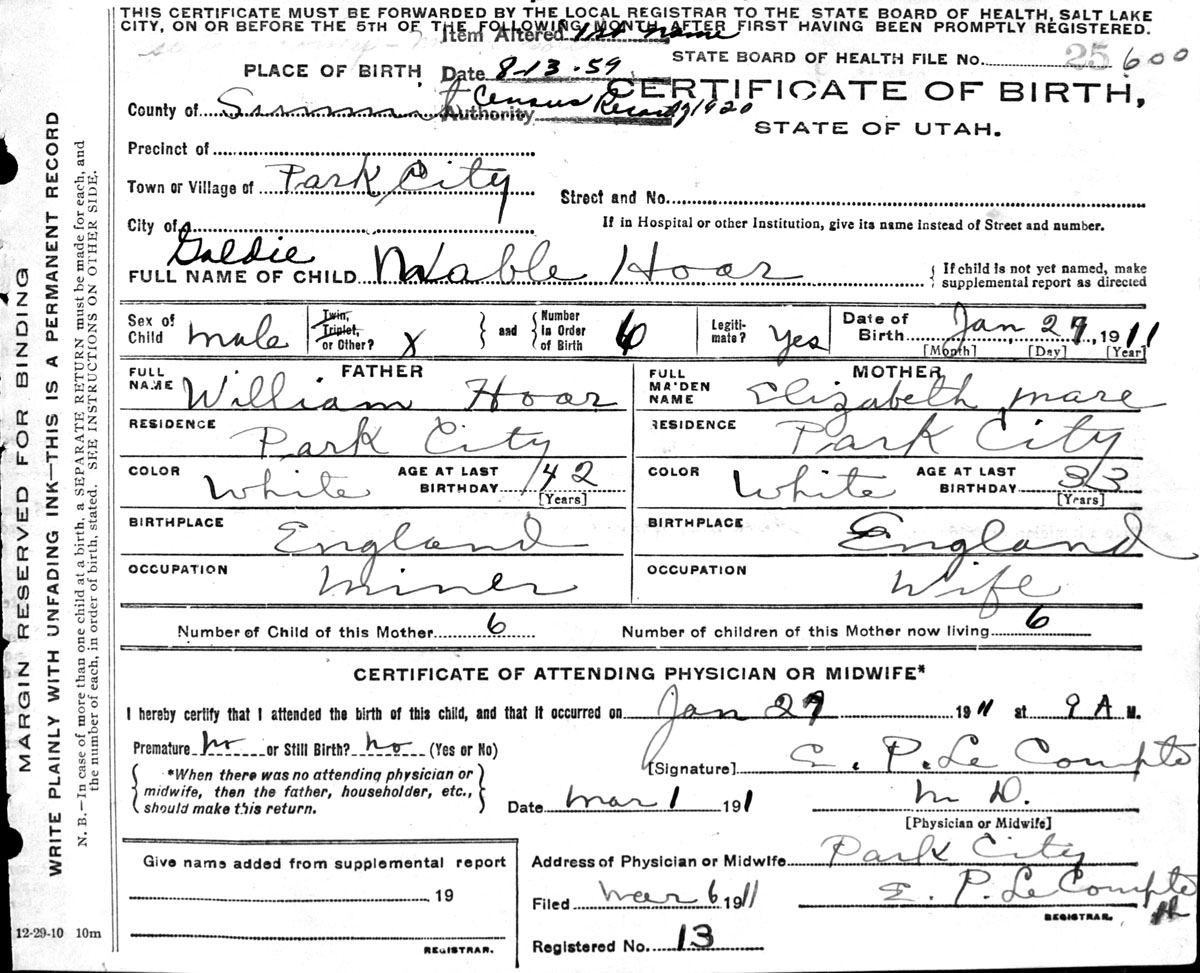 THIS CERTIFICATE MUST BE FORWARDED BY THE LOCAL REGISTRAR TO THE STATE BOARD OF HEALTH, SALT LAKE
CITY, ON OR BEFORE THE 5TH OF THE FOLLOWING MONTH AFTER FIRST HAVING BEEN PROMPTLY REGISTERED.
Item Altered 1st name
STATE BOARD OF HEALTH FILE No. 25 600
PLACE OF BIRTH
Date 8-13-59
CERTIFICATE OF BIRTH,
County of Summit
Authority Census Record of 1920
STATE OF UTAH.
Precinct of
Town or Village of Park City
Street and No.
City of
If in Hospital or other Institution, give its name instead of Street and number.
Goldie
FULL NAME OF CHILD Mable Hoar
{ If child is not yet named, make
supplemental report as directed
Sex of Child male
Twin, Triplet, or Other? X
} and { Number in Order of Birth 6
Legiti-mate? Yes
Date of Birth Jan 27, 1911
[Month] [Day] [Year]
FATHER
FULL NAME William Hoar
RESIDENCE Park City
COLOR White AGE AT LAST BIRTHDAY 42 [Years]
BIRTHPLACE England
OCCUPATION Miner
MOTHER
FULL MAIDEN NAME Elizabeth Mare
RESIDENCE Park City
COLOR White AGE AT LAST BIRTHDAY 33 [Years]
BIRTHPLACE England
OCCUPATION Wife
Number of Child of this Mother 6
Number of children of this Mother now living 6
CERTIFICATE OF ATTENDING PHYSICIAN OR MIDWIFE*
I hereby certify that I attended the birth of this child, and that it occurred on Jan 27 1911 at 9 A M.
Premature no or Still Birth? no (Yes or No)
[Signature] E. P. Le Compte
{ *When there was no attending physician or
midwife, then the father, householder, etc.,
should make this return. }
Date Mar 1 1911
M D.
[Physician or Midwife]
Give name added from supplemental report
19
REGISTRAR.
Address of Physician or Midwife Park City
Filed Mar 6 1911
E. P. Le Compte
REGISTRAR.
Registered No. 13
12-29-10 10m
MARGIN RESERVED FOR BINDING
WRITE PLAINLY WITH UNFADING INK—THIS IS A PERMANENT RECORD
N. B.—In case of more than one child at a birth, a SEPARATE RETURN must be made for each, and
the number of each, in order of birth, stated. SEE INSTRUCTIONS ON OTHER SIDE.